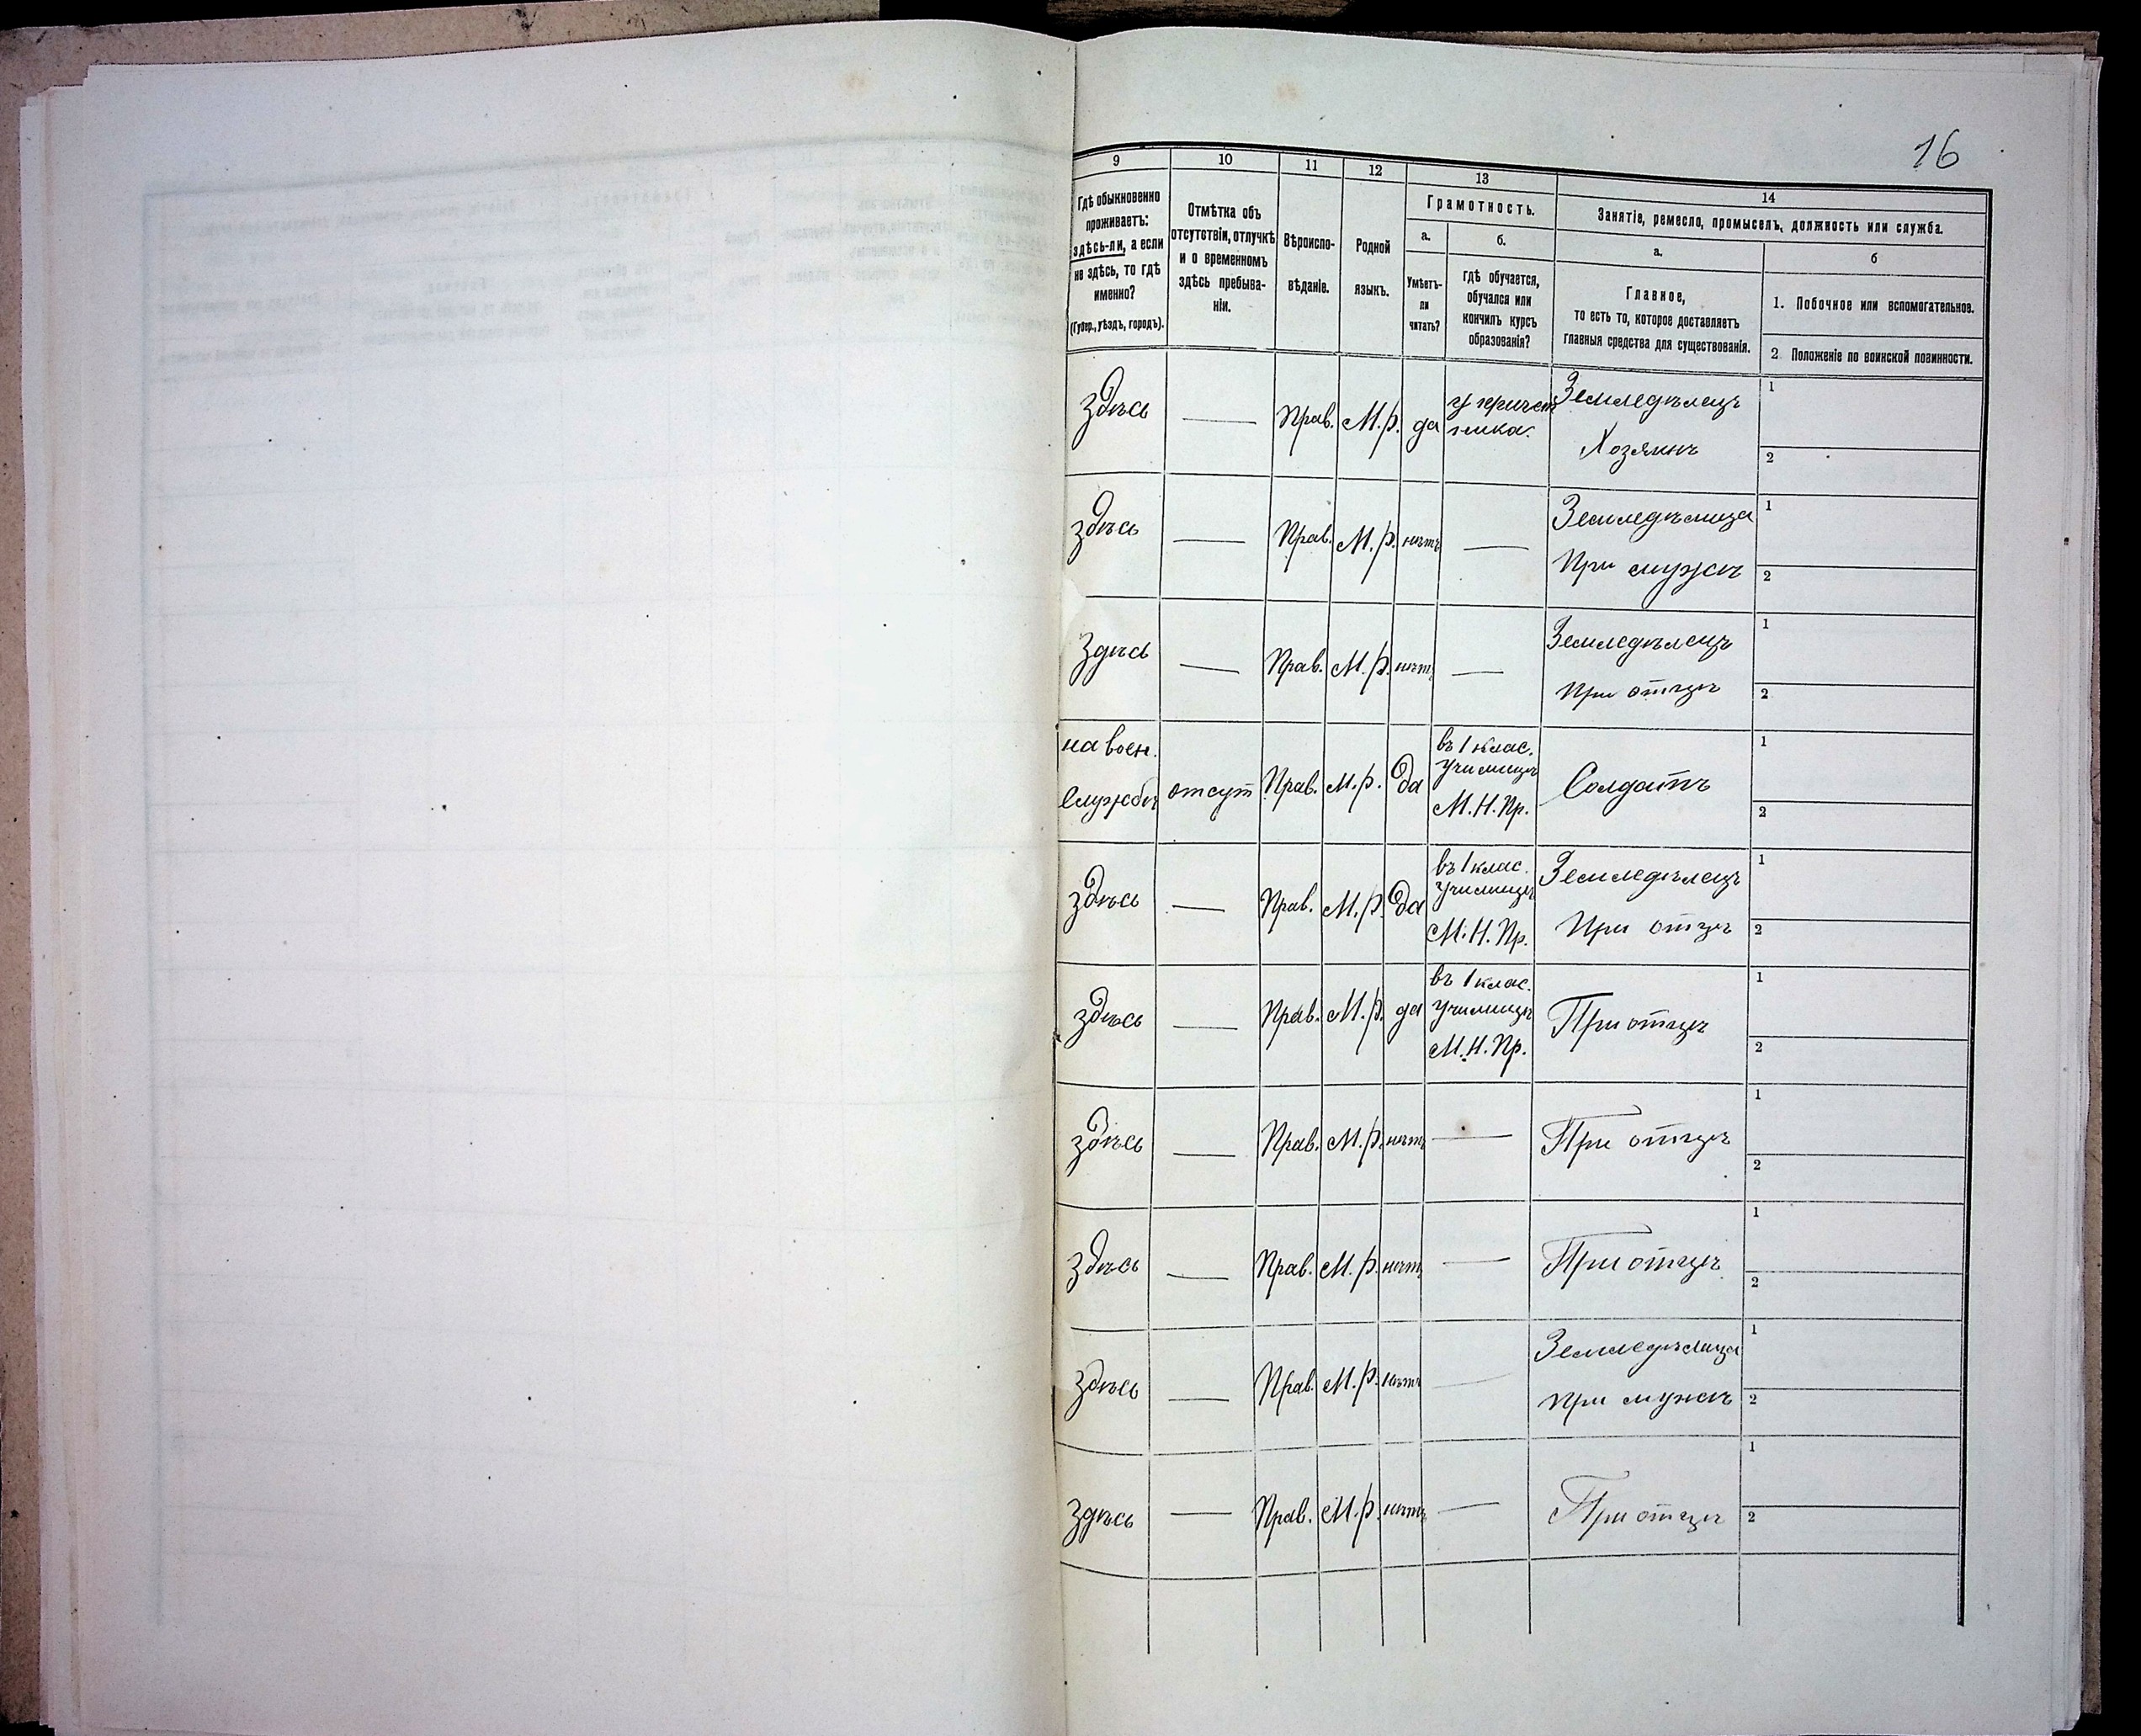 16
9 10 11 12 13 14
Гдѣ обыкновенно
проживаетъ:
здѣсь-ли, а если
не здѣсь, то гдѣ
именно?
(Губер., уѣздъ, городъ).
Отмѣтка объ
отсутствіи, отлучкѣ
и о временномъ
здѣсь пребыва-
ніи.
Вѣроиспо-
вѣданіе.
Родной
языкъ.
Грамотность.
а.
Умѣетъ-
ли
читать?
б.
гдѣ обучается,
обучался или
кончилъ курсъ
образованія?
Занятіе, ремесло, промыселъ, должность или служба.
а.
Главное,
то есть то, которое доставляетъ
главныя средства для существованія.
б
1. Побочное или вспомогательное.
2 Положеніе по воинской повинности.
здѣсь — Прав. М.р. да
Земледѣлецъ
Хозяинъ
1
2
здѣсь — Прав. М.р. нѣтъ —
Земледѣлица
При мужѣ
1
2
здѣсь — Прав. М.р. нѣтъ —
Земледѣлецъ
При отцѣ
1
2
на воен.
службѣ
отсут Прав. М.р. Да
въ 1 клас.
училищѣ
М.Н.Пр.
Солдатъ
1
2
здѣсь — Прав. М.р. Да
въ 1 клас.
училищѣ
М.Н.Пр.
Земледѣлецъ
При отцѣ
1
2
здѣсь — Прав. М.р. да
въ 1 клас.
училищѣ
М.Н.Пр.
При отцѣ
1
2
здѣсь — Прав. М.р. нѣтъ —
При отцѣ
1
2
здѣсь — Прав. М.р. нѣтъ —
При отцѣ
1
2
здѣсь — Прав. М.р. нѣтъ —
Земледѣлица
при мужѣ
1
2
здѣсь — Прав. М.р. нѣтъ —
При отцѣ
1
2